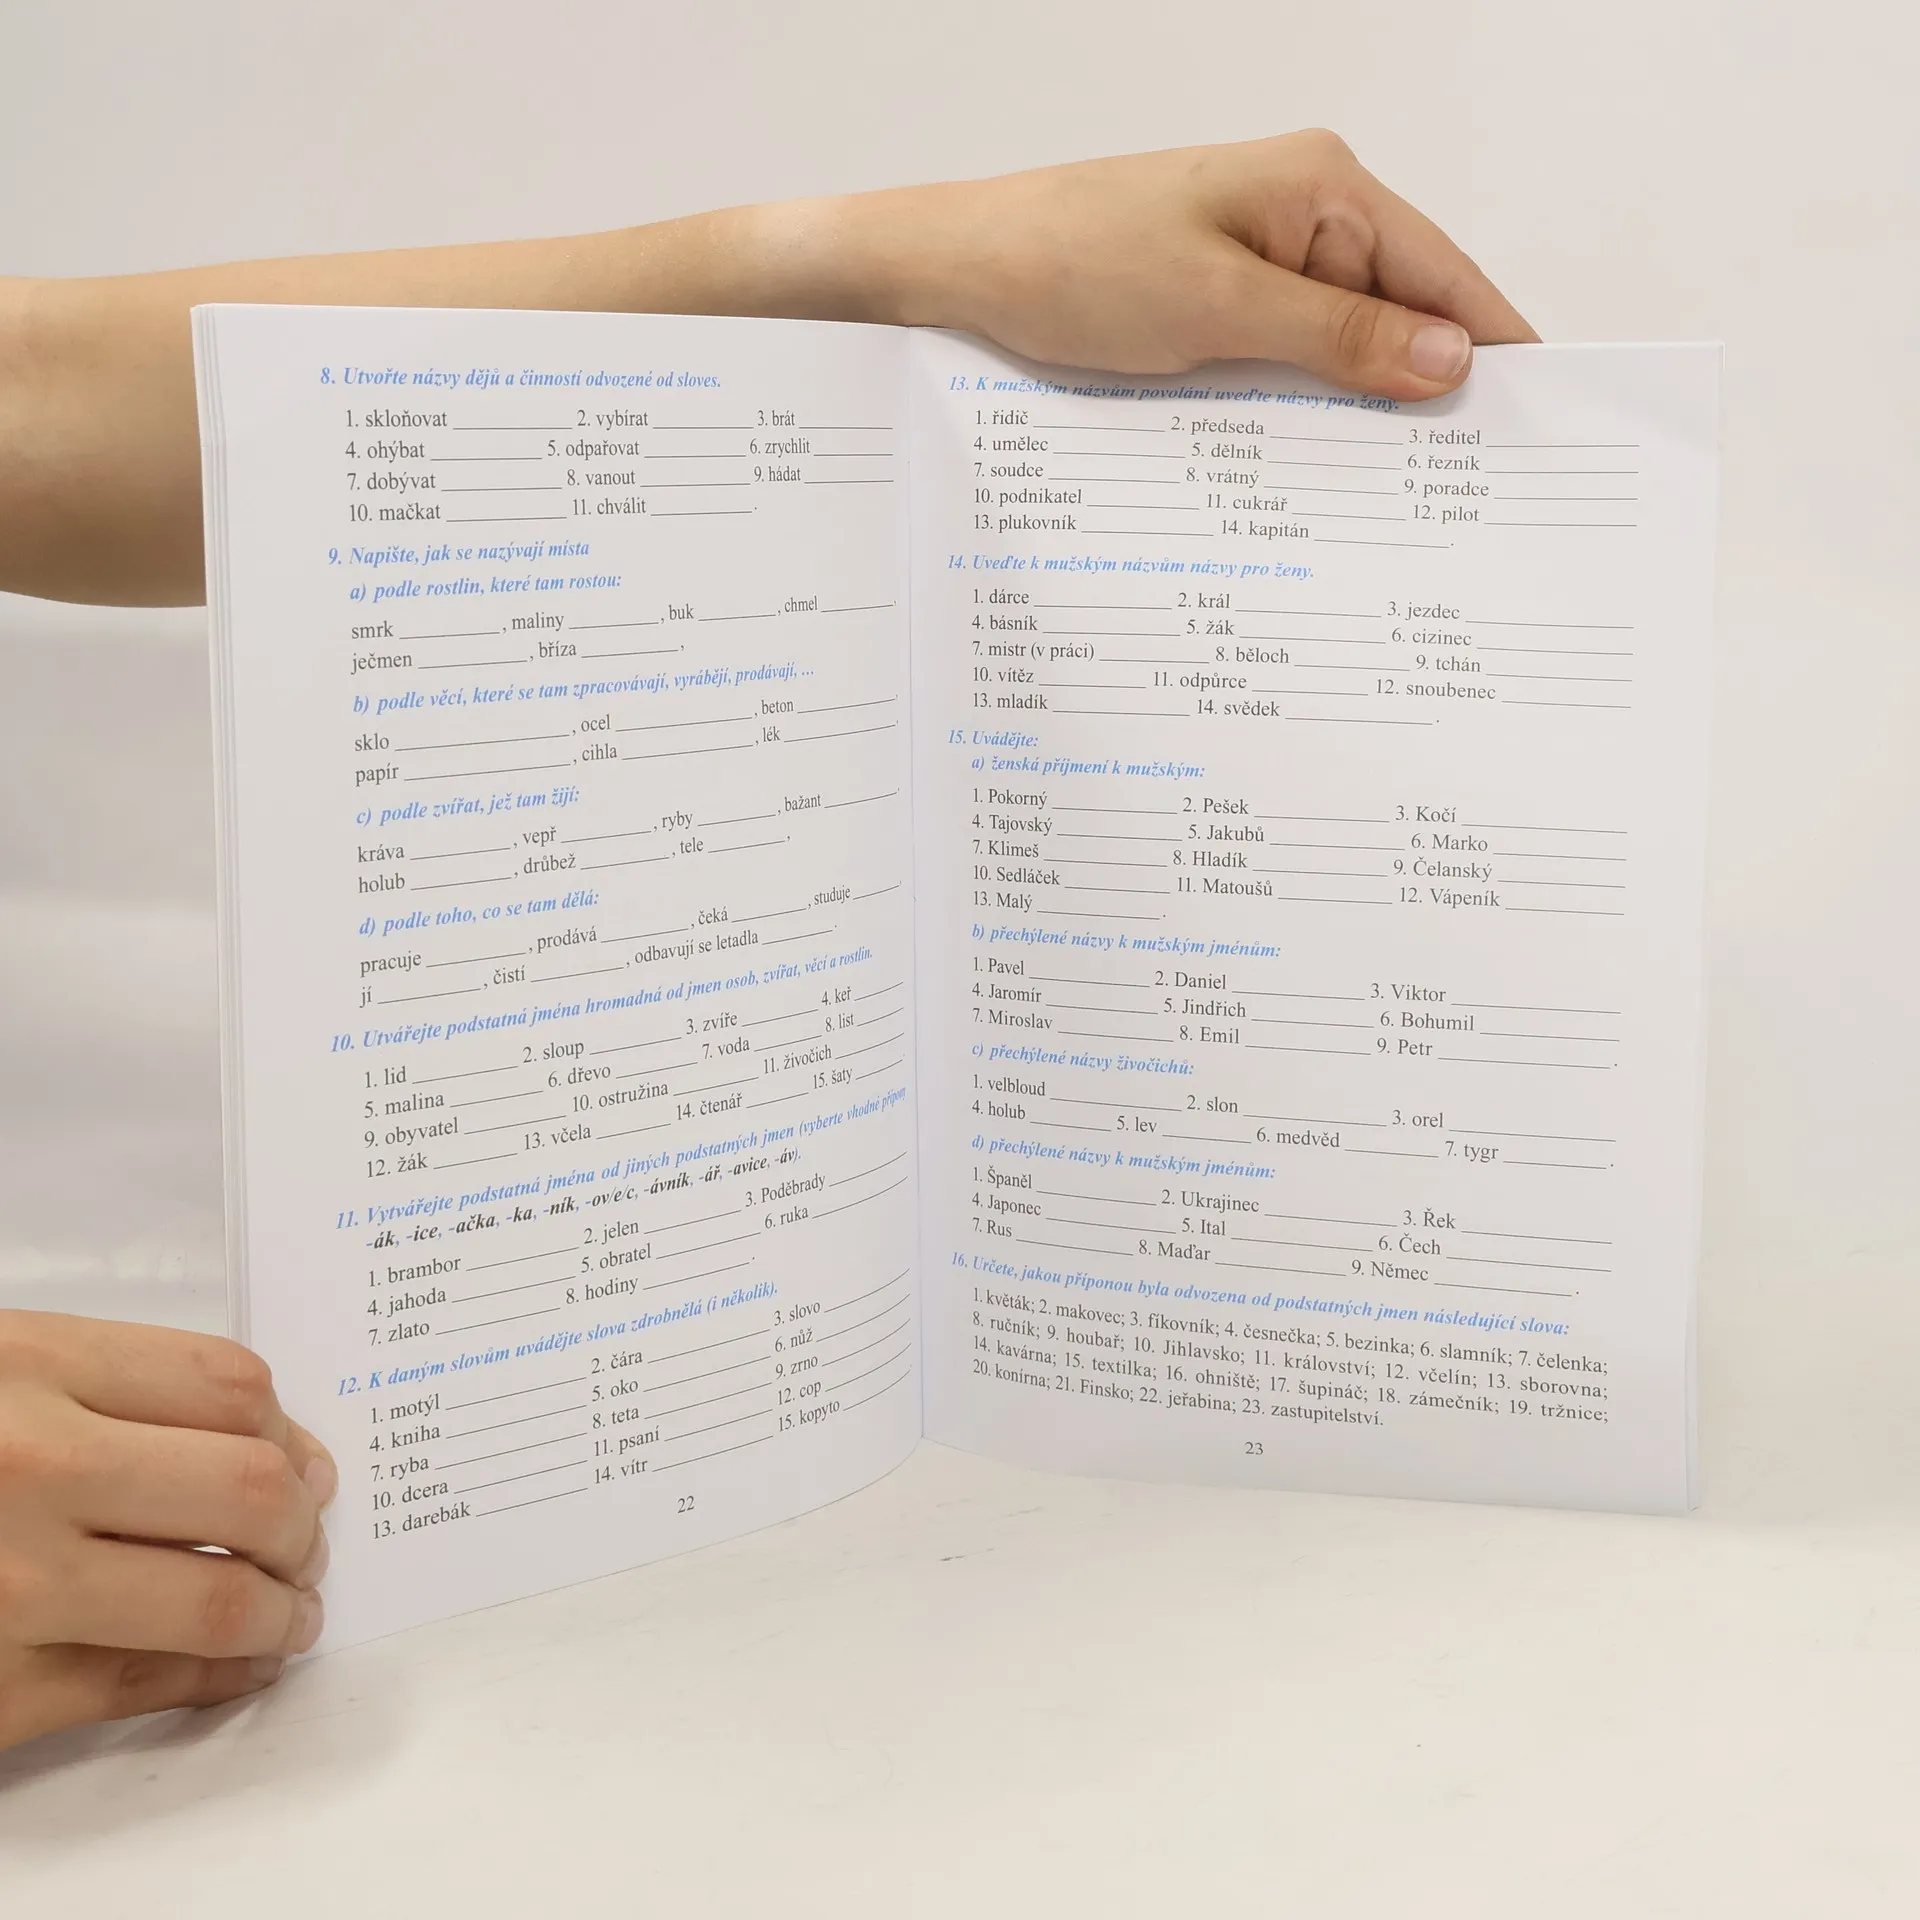 8. Utvořte názvy dějů a činností odvozené od sloves.
1. skloňovat __________ 2. vybírat __________ 3. brát __________
4. ohýbat __________ 5. odpařovat __________ 6. zrychlit __________
7. dobývat __________ 8. vanout __________ 9. hádat __________
10. mačkat __________ 11. chválit __________.
9. Napište, jak se nazývají místa
a) podle rostlin, které tam rostou:
smrk __________, maliny __________, buk __________, chmel __________,
ječmen __________, bříza __________,
b) podle věcí, které se tam zpracovávají, vyrábějí, prodávají, ...
sklo __________, ocel __________, beton __________,
papír __________, cihla __________, lék __________,
c) podle zvířat, jež tam žijí:
kráva __________, vepř __________, ryby __________, bažant __________,
holub __________, drůbež __________, tele __________,
d) podle toho, co se tam dělá:
pracuje __________, prodává __________, čeká __________, studuje __________,
jí __________, čistí __________, odbavují se letadla __________.
10. Utvářejte podstatná jména hromadná od jmen osob, zvířat, věcí a rostlin.
1. lid __________ 2. sloup __________ 3. zvíře __________ 4. keř __________
5. malina __________ 6. dřevo __________ 7. voda __________ 8. list __________
9. obyvatel __________ 10. ostružina __________ 11. živočich __________
12. žák __________ 13. včela __________ 14. čtenář __________ 15. šaty __________
11. Vytvářejte podstatná jména od jiných podstatných jmen (vyberte vhodné přípony
-ák, -ice, -ačka, -ka, -ník, -ov/e/c, -ávník, -ář, -avice, -áv).
1. brambor __________ 2. jelen __________ 3. Poděbrady __________
4. jahoda __________ 5. obratel __________ 6. ruka __________
7. zlato __________ 8. hodiny __________.
12. K daným slovům uvádějte slova zdrobnělá (i několik).
1. motýl __________ 2. čára __________ 3. slovo __________
4. kniha __________ 5. oko __________ 6. nůž __________
7. ryba __________ 8. teta __________ 9. zrno __________
10. dcera __________ 11. psaní __________ 12. cop __________
13. darebák __________ 14. vítr __________ 15. kopyto __________
22
13. K mužským názvům povolání uveďte názvy pro ženy.
1. řidič __________ 2. předseda __________ 3. ředitel __________
4. umělec __________ 5. dělník __________ 6. řezník __________
7. soudce __________ 8. vrátný __________ 9. poradce __________
10. podnikatel __________ 11. cukrář __________ 12. pilot __________
13. plukovník __________ 14. kapitán __________.
14. Uveďte k mužským názvům názvy pro ženy.
1. dárce __________ 2. král __________ 3. jezdec __________
4. básník __________ 5. žák __________ 6. cizinec __________
7. mistr (v práci) __________ 8. běloch __________ 9. tchán __________
10. vítěz __________ 11. odpůrce __________ 12. snoubenec __________
13. mladík __________ 14. svědek __________.
15. Uvádějte:
a) ženská příjmení k mužským:
1. Pokorný __________ 2. Pešek __________ 3. Kočí __________
4. Tajovský __________ 5. Jakubů __________ 6. Marko __________
7. Klimeš __________ 8. Hladík __________ 9. Čelanský __________
10. Sedláček __________ 11. Matoušů __________ 12. Vápeník __________
13. Malý __________.
b) přechýlené názvy k mužským jménům:
1. Pavel __________ 2. Daniel __________ 3. Viktor __________
4. Jaromír __________ 5. Jindřich __________ 6. Bohumil __________
7. Miroslav __________ 8. Emil __________ 9. Petr __________.
c) přechýlené názvy živočichů:
1. velbloud __________ 2. slon __________ 3. orel __________
4. holub __________ 5. lev __________ 6. medvěd __________ 7. tygr __________.
d) přechýlené názvy k mužským jménům:
1. Španěl __________ 2. Ukrajinec __________ 3. Řek __________
4. Japonec __________ 5. Ital __________ 6. Čech __________
7. Rus __________ 8. Maďar __________ 9. Němec __________.
16. Určete, jakou příponou byla odvozena od podstatných jmen následující slova:
1. květák; 2. makovec; 3. fíkovník; 4. česnečka; 5. bezinka; 6. slamník; 7. čelenka;
8. ručník; 9. houbař; 10. Jihlavsko; 11. království; 12. včelín; 13. sborovna;
14. kavárna; 15. textilka; 16. ohniště; 17. šupináč; 18. zámečník; 19. tržnice;
20. konírna; 21. Finsko; 22. jeřabina; 23. zastupitelství.
23